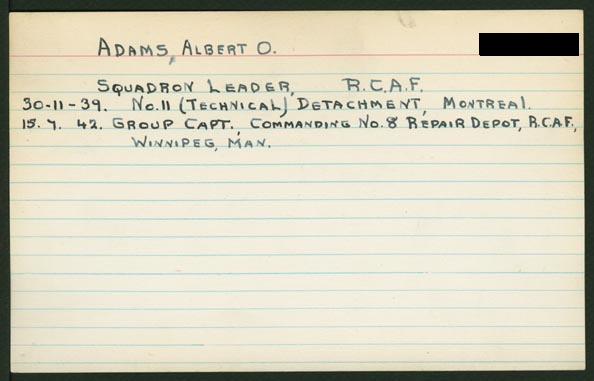 ADAMS, ALBERT O.
SQUADRON LEADER, R.C.A.F.
30-11-39. No.11 (TECHNICAL) DETACHMENT, MONTREAL.
15.7.42. GROUP CAPT., COMMANDING No.8 REPAIR DEPOT, R.C.A.F.,
WINNIPEG, MAN.